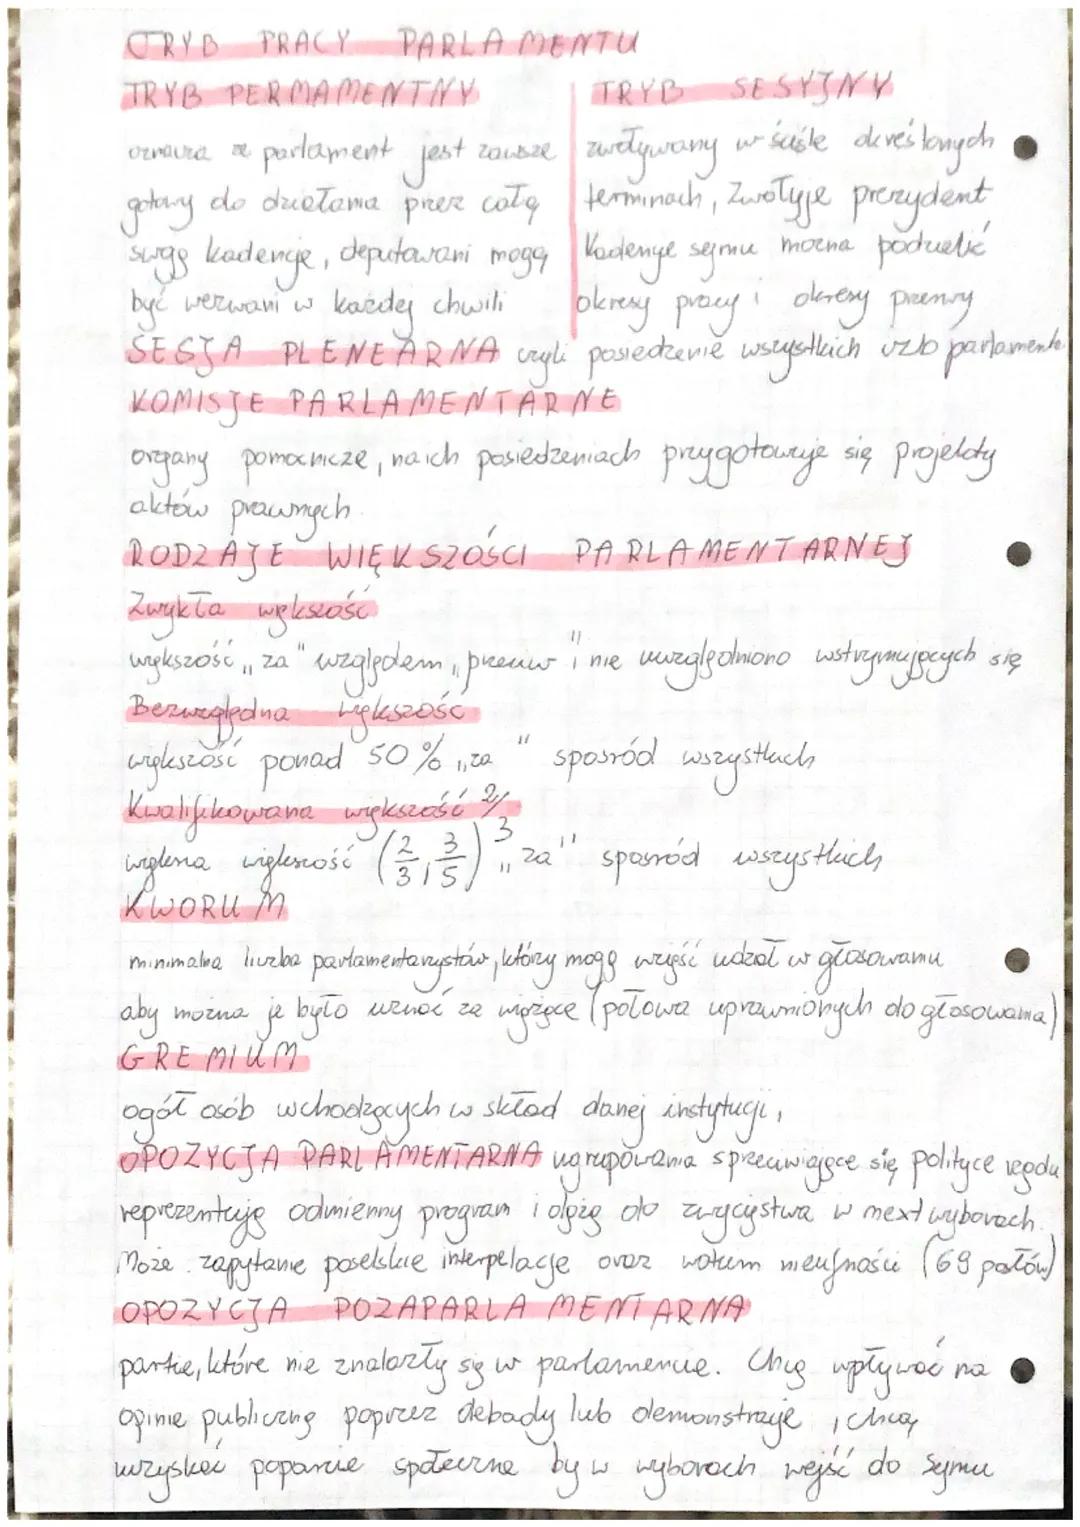 TRYB PRACY PARLAMENTU
TRYB PERMAMENTNY
oznacza że parlament jest zawsze
gotowy do działania przez całą
swoją kadencję, deputowani mogą
być wezwani w każdej chwili
TRYB SESYJNY
zwoływany w ściśle określonych
terminach, Zwołuje prezydent
Kadencje sejmu można podzielić
okresy pracy i okresy przerwy
SESJA PLENEARNA czyli posiedzenie wszystkich izb parlamentu
KOMISJE PARLAMENTARNE
organy pomocnicze, na ich posiedzeniach przygotowuje się projekty
aktów prawnych.
RODZAJE WIĘKSZOŚCI PARLAMENTARNEJ
Zwykła większość
większość „za" względem „przeciw" i nie uwzględniono wstrzymujących się
Bezwzględna większość
większość ponad 50% „za" spośród wszystkich
Kwalifikowana większość 2/3
większość (2/3, 3/5) „za" spośród wszystkich
KWORUM
minimalna liczba parlamentarzystów, którzy mogą wziąść udział w głosowaniu
aby można je było uznać za wiążące (połowa uprawnionych do głosowania)
GREMIUM
ogół osób wchodzących w skład danej instytucji,
OPOZYCJA PARLAMENTARNA ugrupowania sprzeciwiające się polityce rządu
reprezentują odmienny program i dążą do zwycięstwa w next wyborach.
Może: zapytanie poselskie interpelacje oraz wotum nieufności (69 posłów)
OPOZYCJA POZAPARLAMENTARNA
partie, które nie znalazły się w parlamencie. Chcą wpływać na
opinie publiczną poprzez debady lub demonstracje, chcą
uzyskać poparcie społeczne by w wyborach wejść do Sejmu